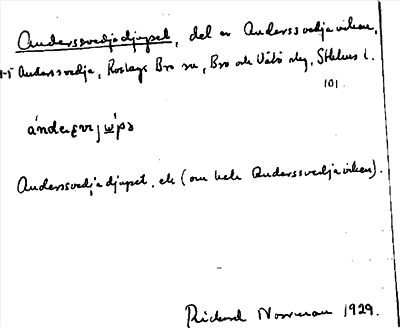 Anderssvedjadjupet, del av Anderssvedjaviken,
Anderssvedja, Roslags Bro sn, Bro och Vätö slg, Sthlms l.
101.
Anderssvedjadjupet, ek (om hela Anderssvedjaviken).
Rickard Norrman 1929.